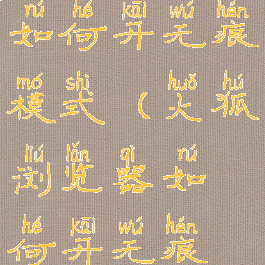 rú hé kāi wú hén
如何开无痕
mó shì huǒ hú
模式（火狐
liú lǎn qì rú
浏览器如
hé kāi wú hén
何开无痕